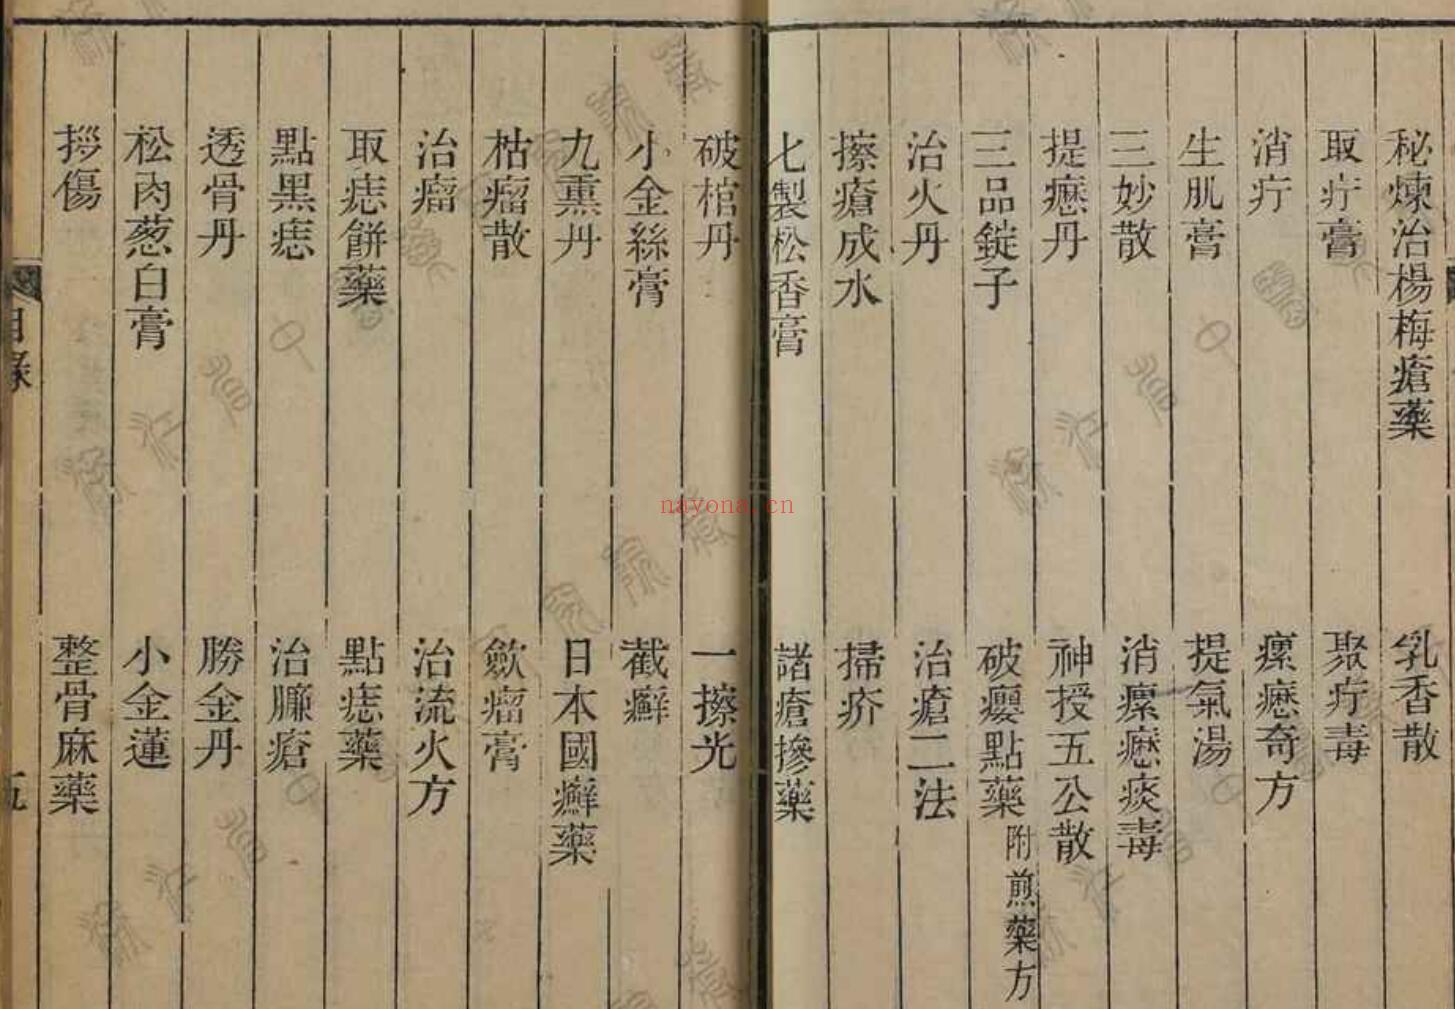 秘煉治楊梅瘡藥 乳香散
取疔膏 聚疔毒
消疔 瘰癧奇方
生肌膏 提氣湯
三妙散 消瘰癧痰毒
提癧丹 神授五公散
三品錠子 破癭點藥 附煎藥方
治火丹 治瘡二法
擦瘡成水 掃疥
七製松香膏 諸瘡摻藥
破棺丹 一擦光
小金絲膏 截癬
九熏丹 日本國癬藥
枯瘤散 斂瘤膏
治瘤 治流火方
取痣餅藥 點痣藥
點黑痣 治臁瘡
透骨丹 勝金丹
松肉葱白膏 小金蓮
拶傷 整骨麻藥
目錄 五
nayona.cn